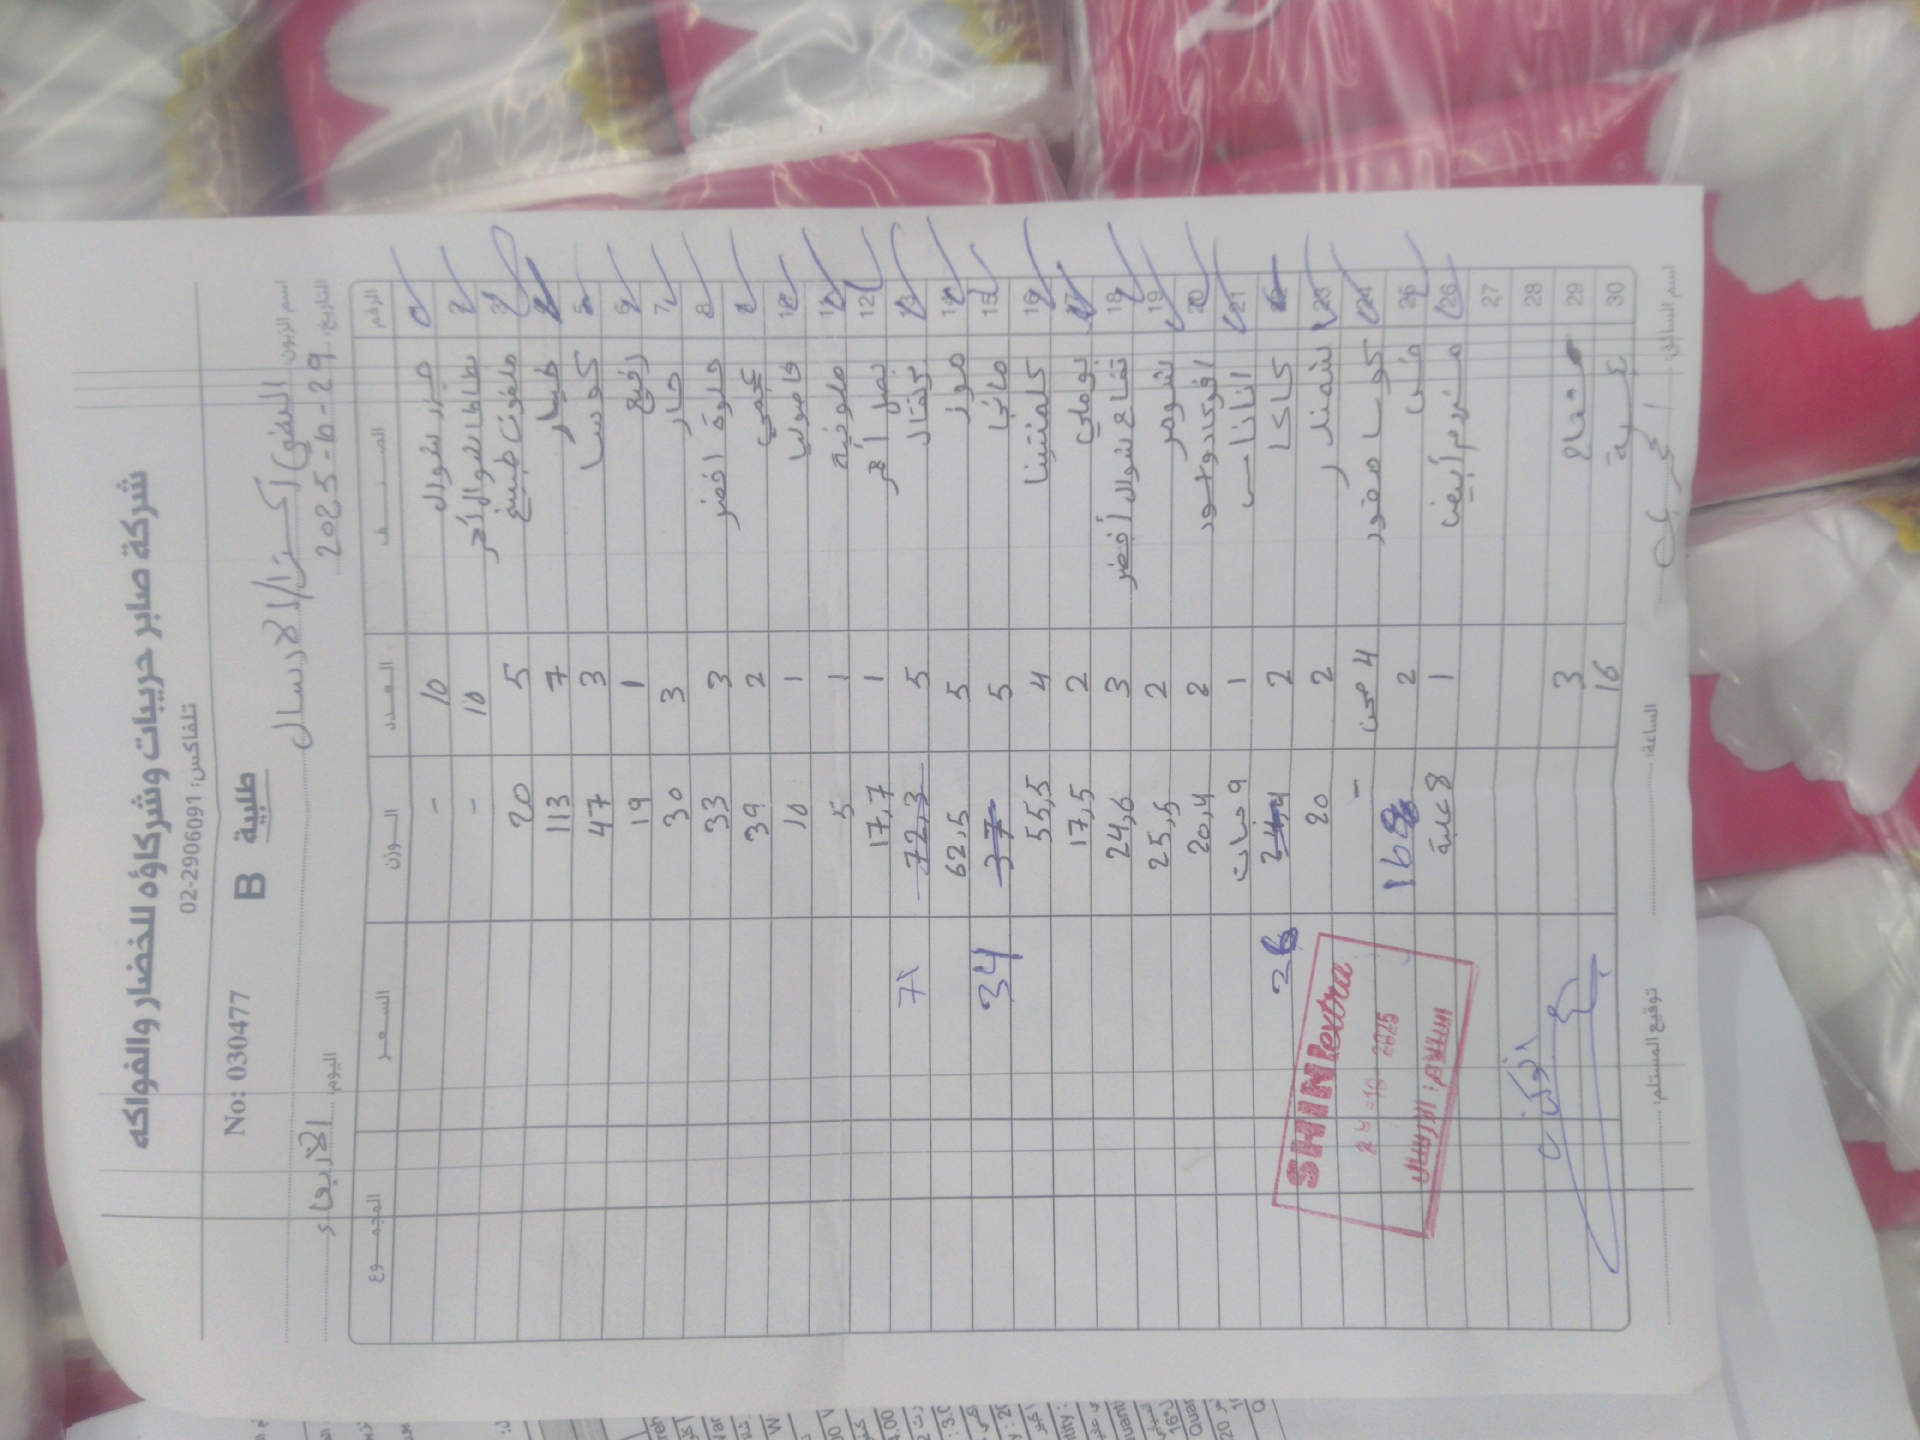 شركة صابر حريبات وشركاؤه للخضار والفواكه
تلفاكس: 02-2906091
No: 030477 B طلبية
اسم الزبون: الشني اكسترا / الارسال
التاريخ: 2025-10-29 اليوم: الأربعاء
الرقم الصنف العدد الوزن السعر المجموع
1 جزر شوال 10 -
2 بطاطا شوال أحمر 10 -
3 ملفوف طبيخ 5 20
4 خيار 7 113
5 كوسا 3 47
6 رفيع 1 19
7 حار 3 30
8 حلوة اخضر 3 33
9 عجمي 2 39
10 فاصوليا 1 10
11 ملوخية 1 5
12 بصل أحمر 1 17,7
13 برتقال 5 72,3 71
14 موز 5 62,5
15 مانجا 5 37 34
16 كلمنتينا 4 55,5
17 بوملي 2 17,5
18 تفاح شوال أخضر 3 24,6
19 شومر 2 25,5
20 افوكادو 2 20,4
21 اناناس 1 9 حبات
22 كاكا 2 24,4 26
23 شمندر 2 20
24 كوسا محفور 4 صحن -
25 2 168
26 مشروم أبيض 1 8 علبة
27
28
29 3
30 16
SHINI extra
2025
استلام: الارسال
اسم السائق: الساعة: توقيع المستلم: